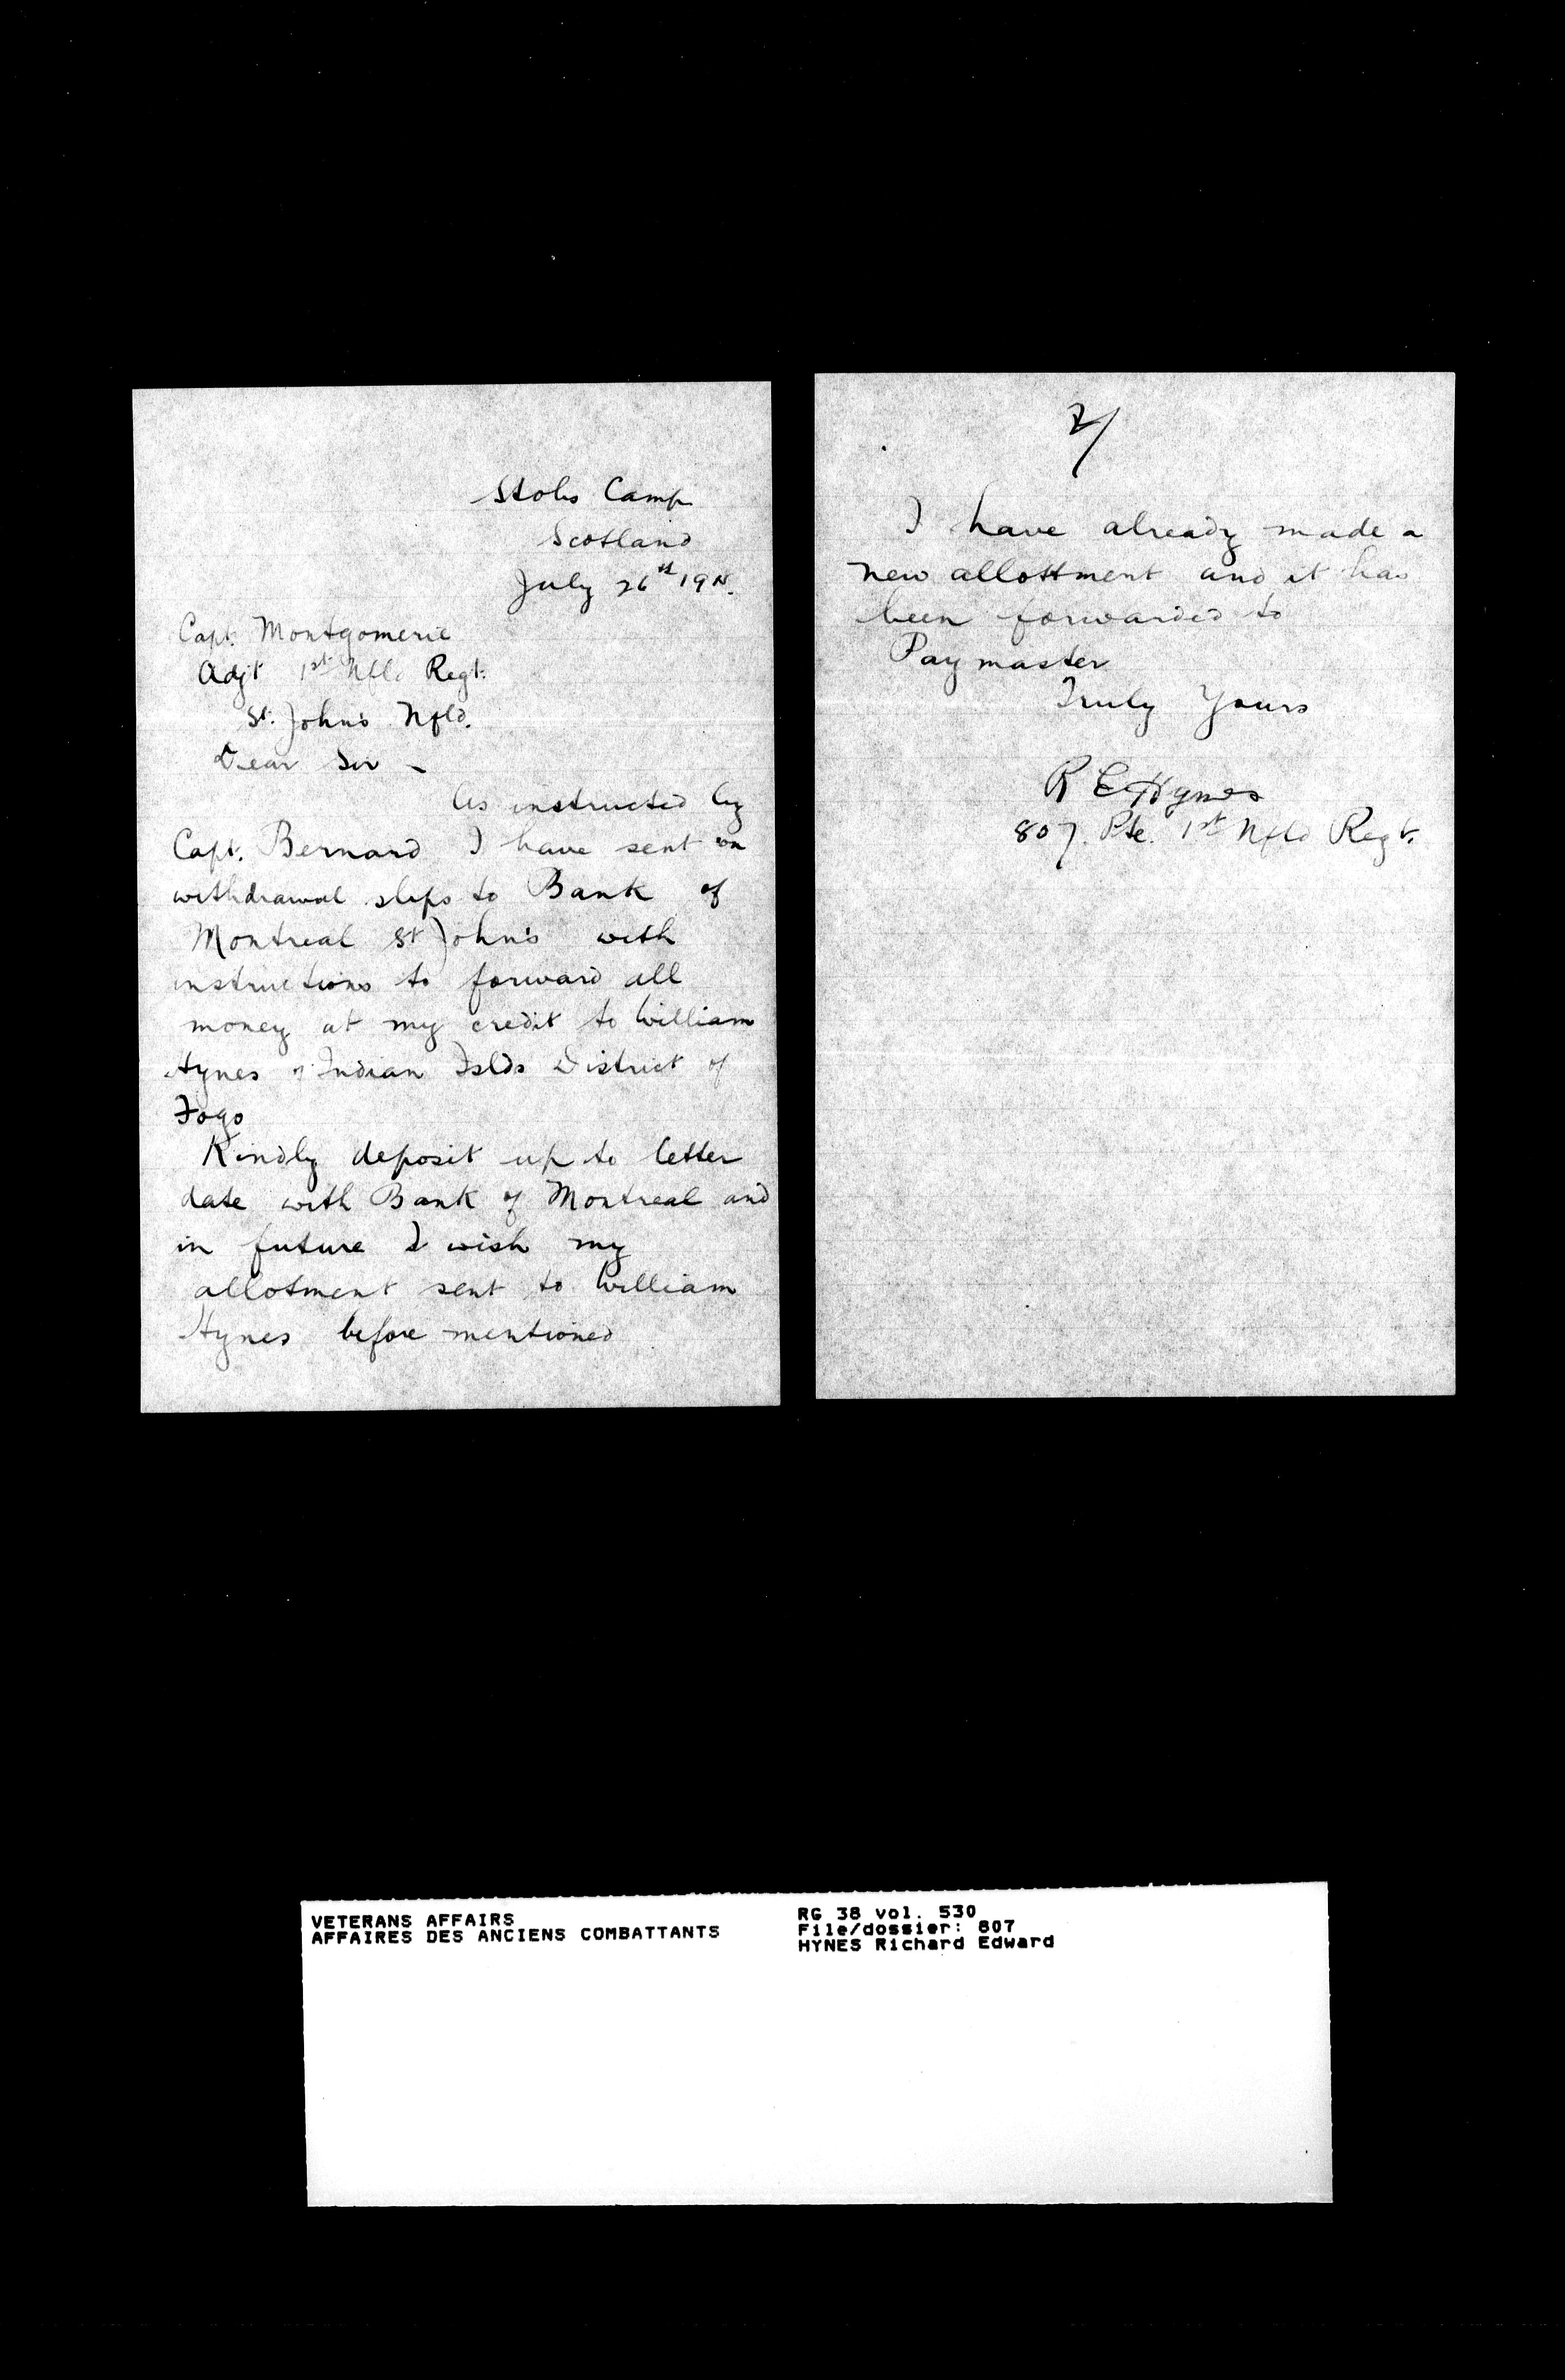 Stobs Camp
Scotland
July 26th 1915.
Capt. Montgomerie
Adjt 1st Nfld Regt.
St. John's Nfld.
Dear Sir -
As instructed by
Capt. Bernard I have sent on
withdrawal slips to Bank of
Montreal St John's with
instructions to forward all
money at my credit to William
Hynes of Indian Islds District of
Fogo
Kindly deposit up to letter
date with Bank of Montreal and
in future I wish my
allotment sent to William
Hynes before mentioned
2/
I have already made a
new allottment and it has
been forwarded to
Paymaster
Truly Yours
R E Hynes
807. Pte. 1st Nfld Regt.
VETERANS AFFAIRS
AFFAIRES DES ANCIENS COMBATTANTS
RG 38 vol. 530
File/dossier: 807
HYNES Richard Edward